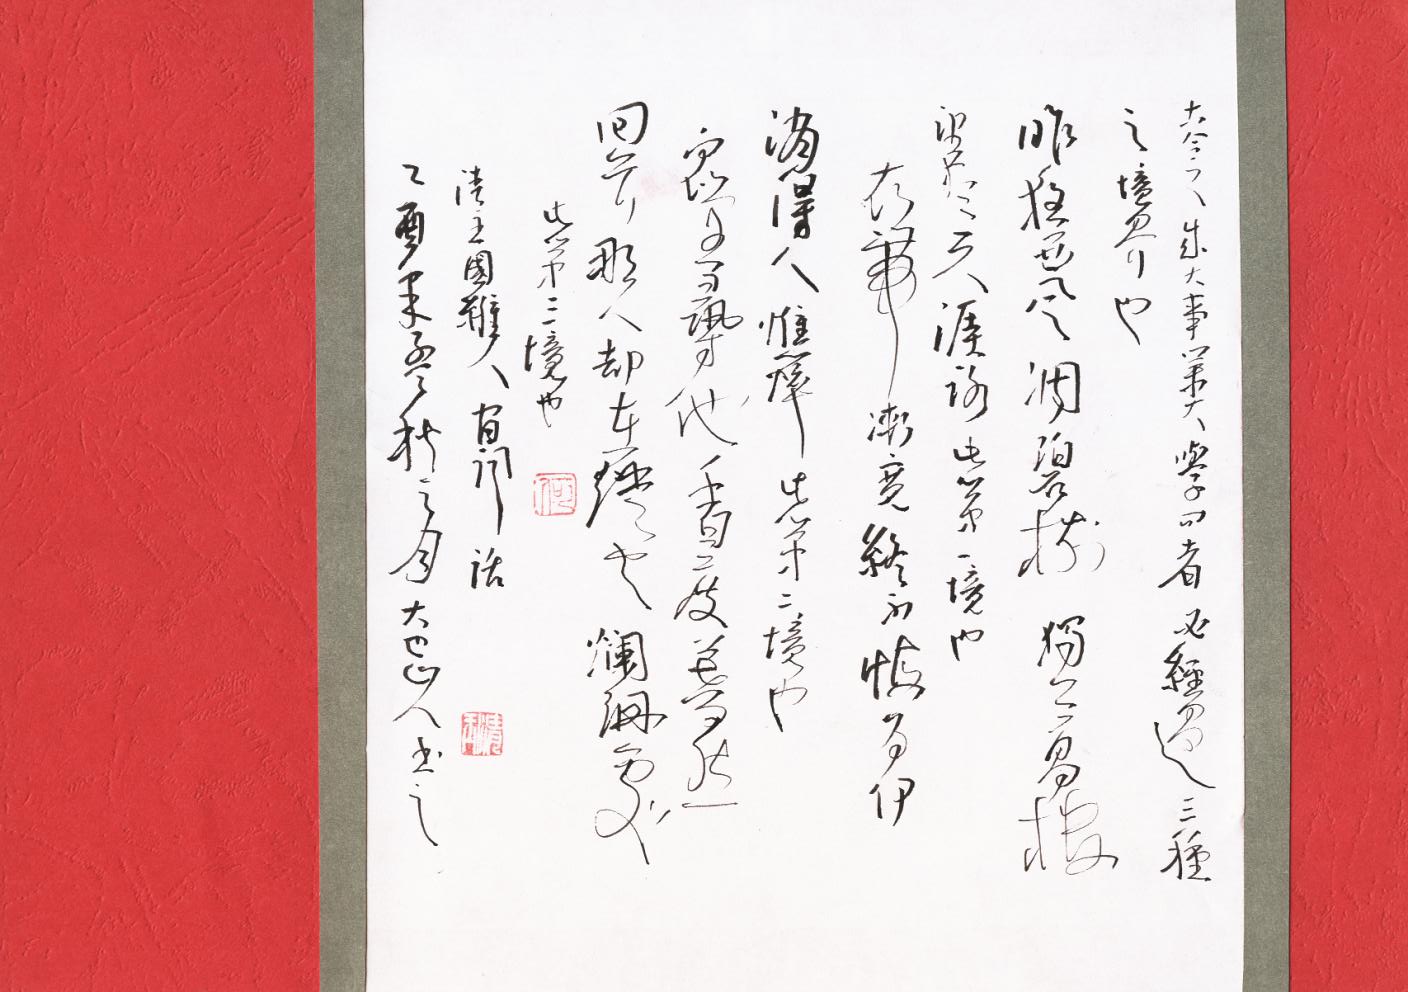 古今之成大事業大學問者必經過三種
之境界也
昨夜西風凋碧樹 獨上高樓
望盡天涯路此第一境也
衣帶漸寬終不悔為伊
消得人憔悴此第二境也
眾里尋他千百度驀然
回首那人却在燈火爛珊處
此第三境也
清王國維人間詞話
乙酉年孟秋之月大巴山人書之
何